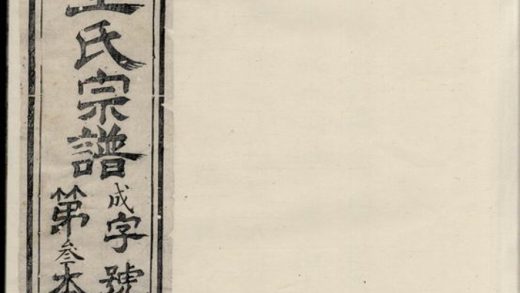 王氏宗譜
成字號
第叁本